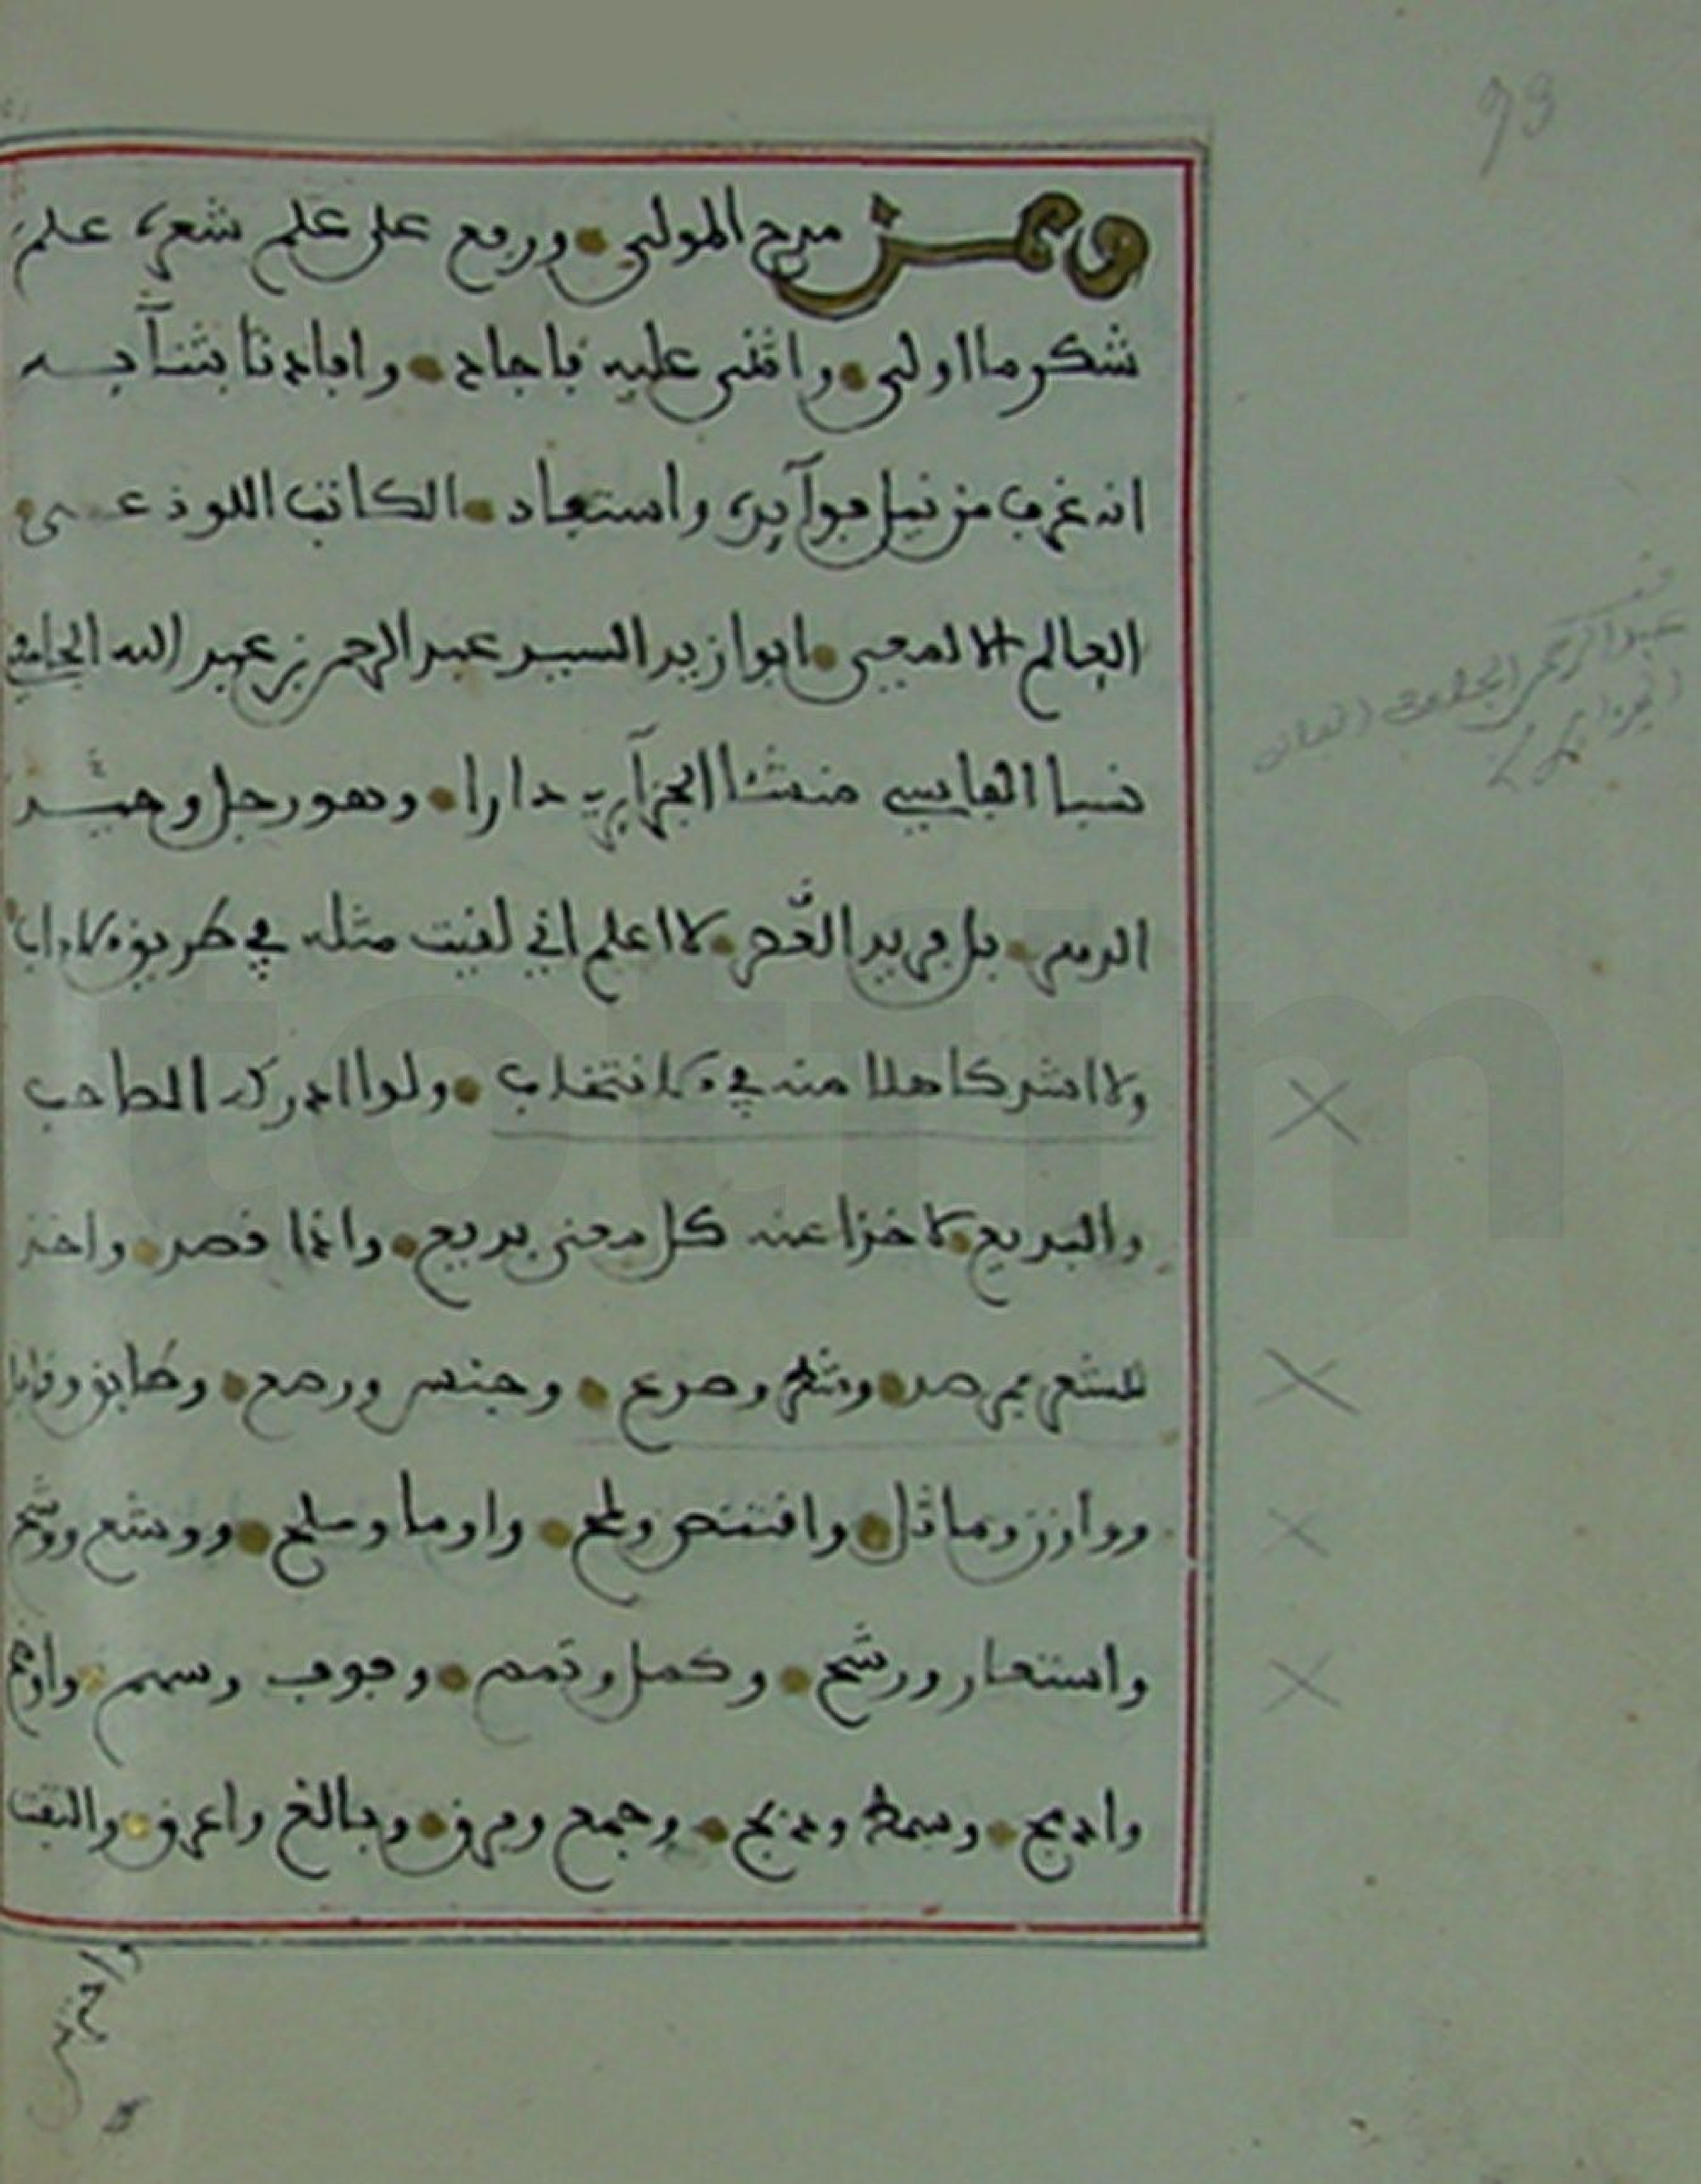 93
وممن مدح المولى ورفع على علم شعره علم
شكر ما اولى واثنى عليه فاجاد وافادنا بثنآيه
انه غرف من نيل فوآيده واستفاد الكاتب اللوذعى
العالم الالمعى ابوا زيد السيد عبد الرحمن بن عبد الله الجامعي
نسبا الفاسي منشئا الجزآيري دارا وهو رجل وحيد
الدهر بل فريد العصر لا اعلم اني لقيت مثله في طريق الاداب
ولا اشد كاهلا منه في الانتخاب ولوا ادركه الصاحب
والبديع لاخذا عنه كل معنى بديع وانما قصد واخذ
للشعر مرصد وشطر وصرع وجنس ورصع وطابق وقابل
ووازن وماثل واقتنص ولمح واوما وسلح ووشع ووشح
واستعار ورشح وكمل وتمم وفوف وسهم
وادمج وسمط ودبج وجمع وفرق وبالغ واغرق والتفت